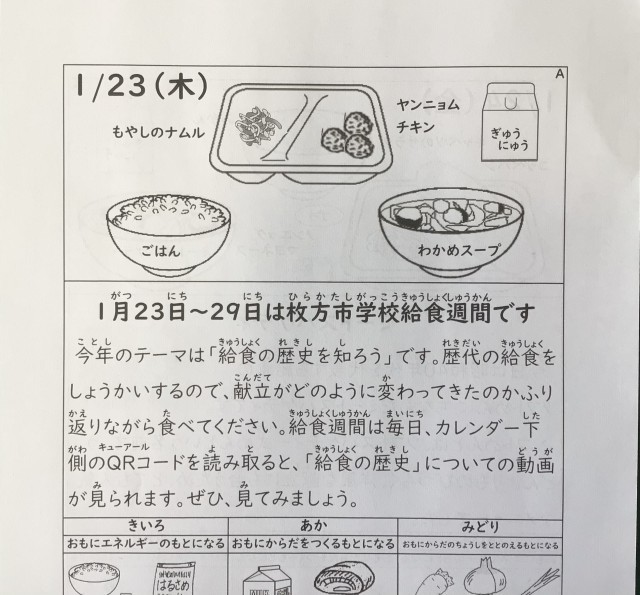 1/23(木)
A
もやしのナムル
ヤンニョム
チキン
ぎゅう
にゅう
ごはん
わかめスープ
1月23日~29日は枚方市学校給食週間です
今年のテーマは「給食の歴史を知ろう」です。歴代の給食を
しょうかいするので、献立がどのように変わってきたのかふり
返りながら食べてください。給食週間は毎日、カレンダー下
側のQRコードを読み取ると、「給食の歴史」についての動画
が見られます。ぜひ、見てみましょう。
きいろ
あか
みどり
おもにエネルギーのもとになる
おもにからだをつくるもとになる
おもにからだのちょうしをととのえるもとになる
はるさめ